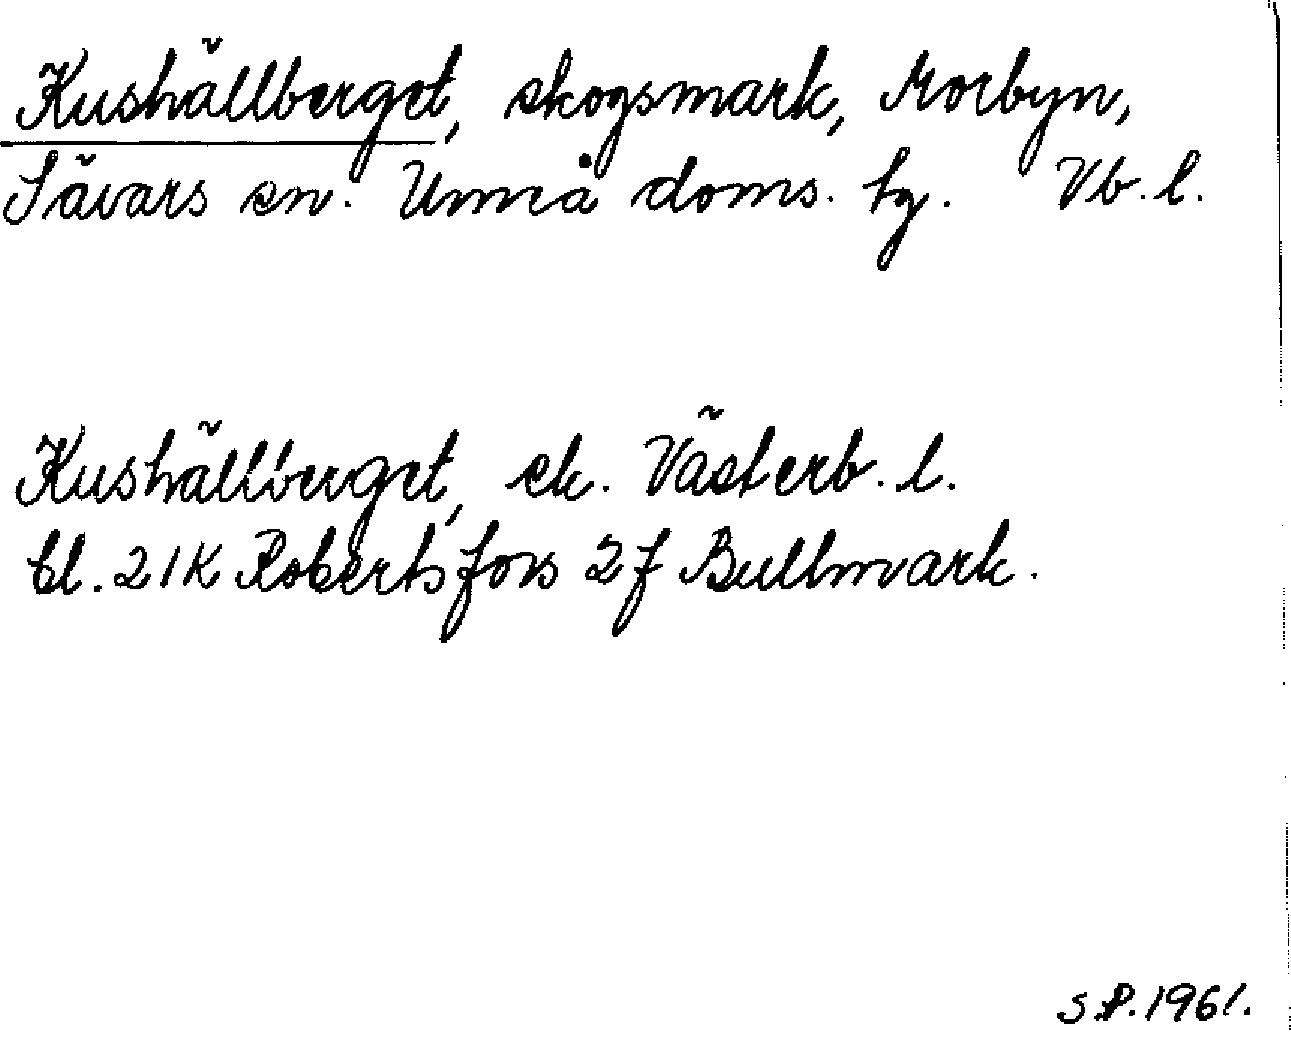 Kushällberget, skogsmark, Morbyn,
Sävars sn. Umeå doms. tg. Vb. l.
Kushällberget, ek. Västerb. l.
bl. 21K Robertsfors 2f Bullmark.
S.P. 1961.